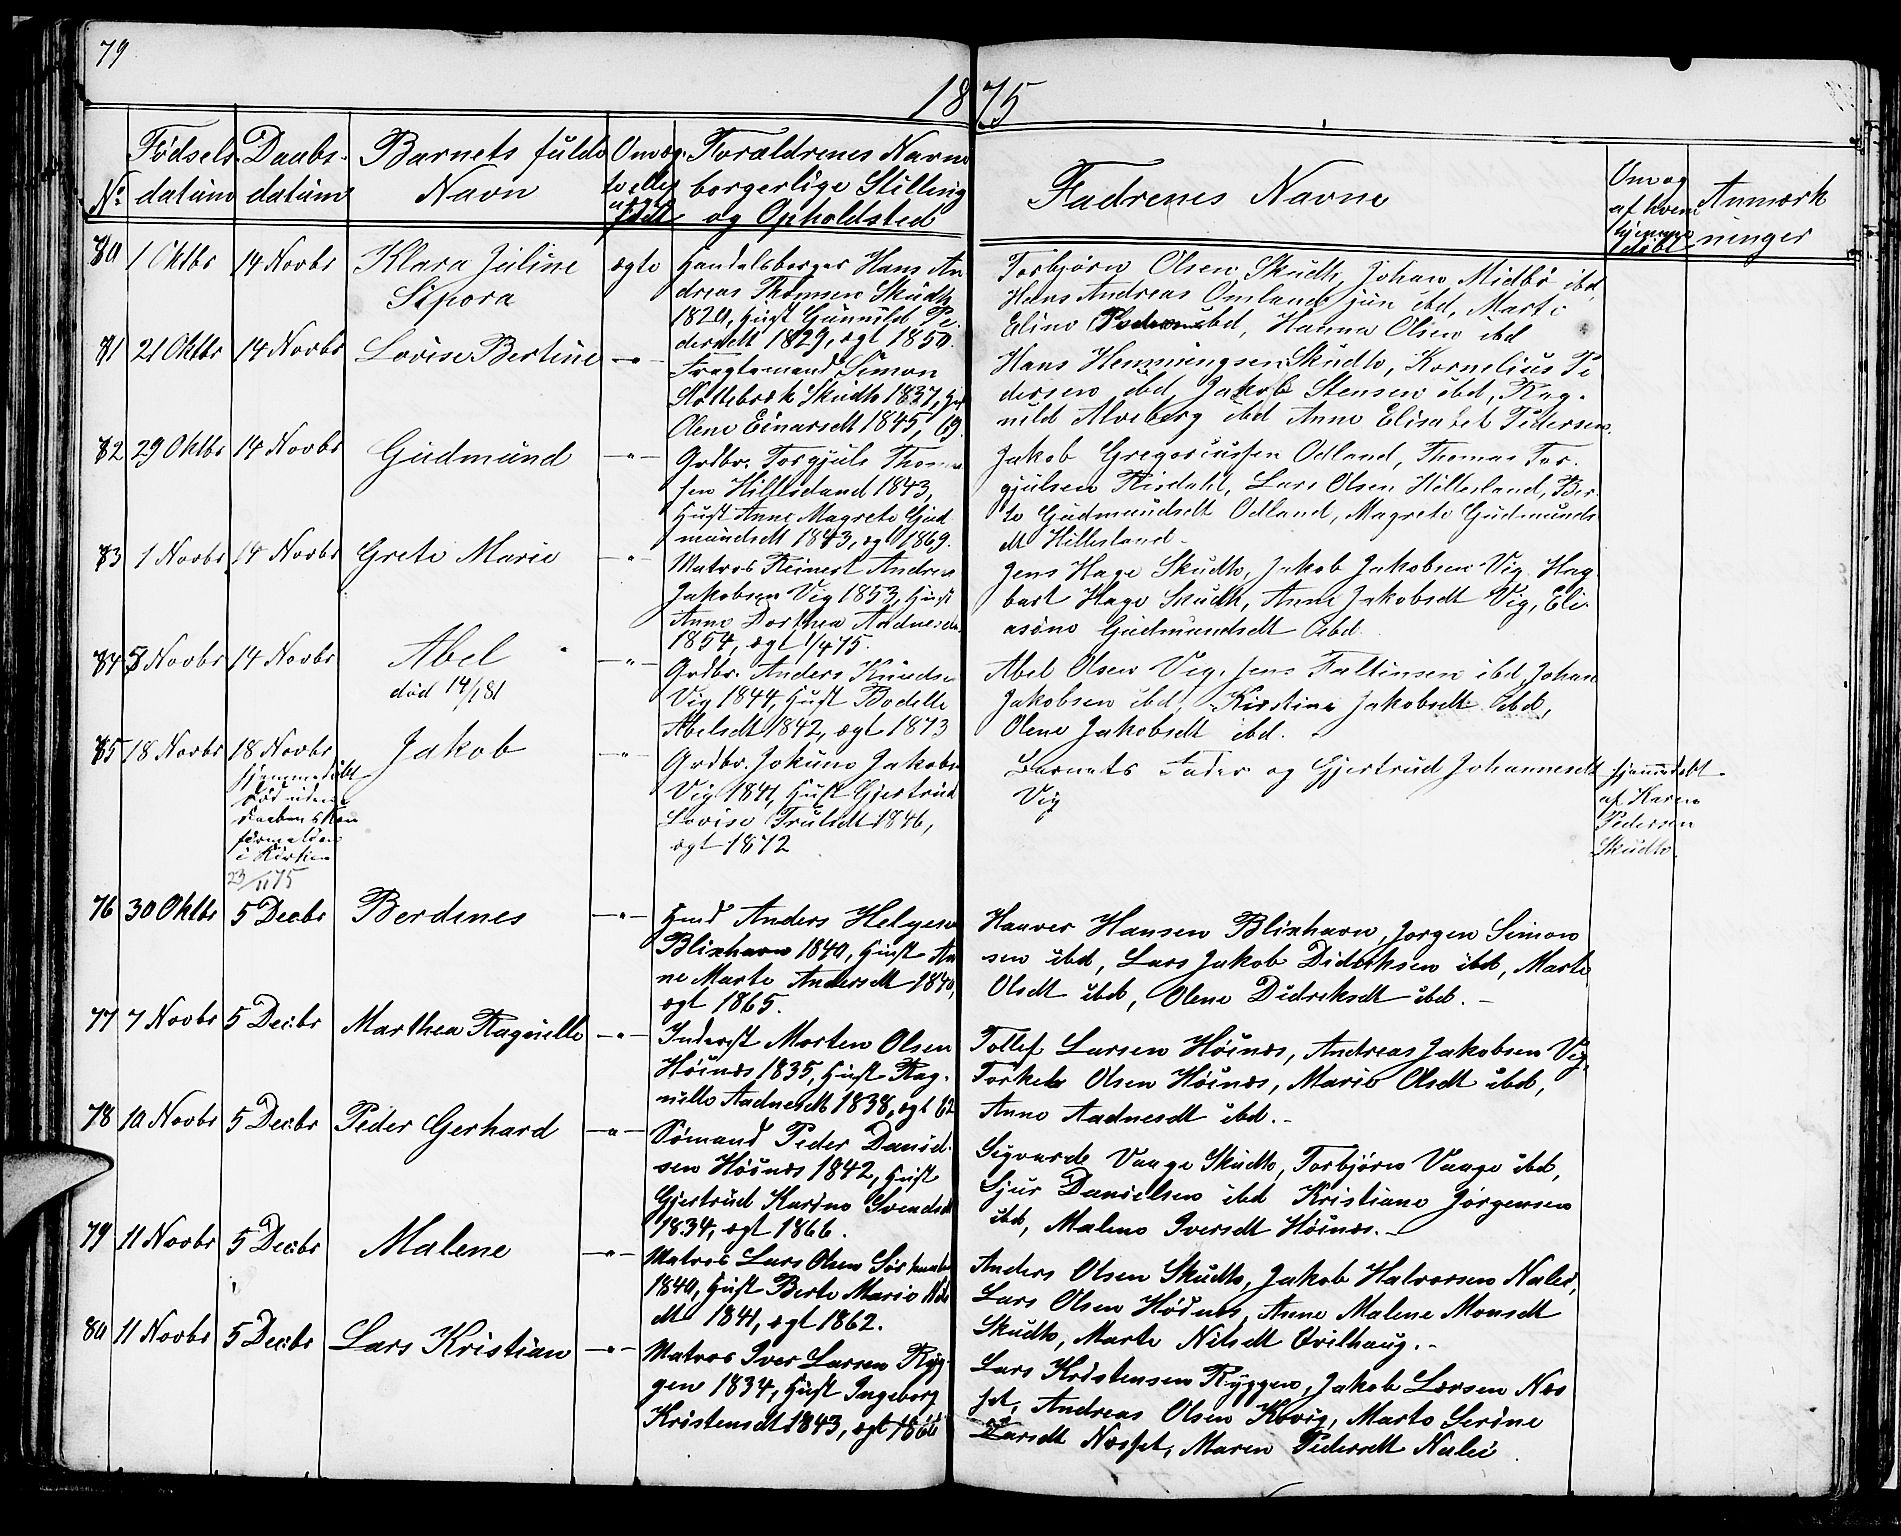 79
1875
No
Fødsels
datum
Daabs-
datum
Barnets fulde
Navn
Om æg-
te eller
uægte
født
Forældrenes Navne
borgerlige Stilling
og Opholdsted
Fadrenes Navne
Om og
af hvem
hjemme
døbt
Anmærk
ninger
1 Oktbr
14 Novbr
Klara Juline
Sipora
ægte
Handelsborger Hans An
dreas Thomsen Skudh
1820, Hust Gunnild Pe
dersdt 1829, ægt 1850.
Torbjørn Olsen Skudh, Johan Midbø ibd,
Hans Andreas Omland jun ibd, Marte
Eline Pedersen ibd, Hanna Olsen ibd
71
21 Oktbr
14 Novbr
Lovise Bertine
-"-
Fragtemand Simon
Slottebrek Skudh 1837, Hust
Olene Einarsdt 1845, 69.
Hans Henningsen Skudh, Kornelius Pe
dersen ibd, Jakob Stensen ibd, Rag-
nild Alveberg ibd Anne Elisabet Pedersen.
72
29 Oktbr
14 Novbr
Gudmund
-"-
Grdbr. Torgjuls Thom
sen Hillesland 1843,
Hust Anne Magrete Gud
mundsdt 1843, ægt 1869.
Jakob Gregoriussen Odland, Thomas Tor-
gjulsen Risdahl, Lars Olsen Hillesland, Ber-
te Gudmundsdt Odland, Magrete Gudmunds
dt Hillesland -
73
1 Novbr
14 Novbr
Grete Marie
-"-
Matros Reinert Andreas
Jakobsen Vig 1853, Hust
Anne Dorthea Aadnesdt
1854, ægt 1/4 75.
Jens Hage Skudh, Jakob Jakobsen Vig, Hag
bart Hage Skudh, Anne Jakobsdt Vig, Eli
asine Gudmundsdt ibd.
74
8 Novbr
14 Novbr
Abel
død 14/1 81
-"-
Grdbr. Anders Knudsen
Vig 1844, Hust Bodelle
Abelsdt 1842, ægt 1873
Abel Olsen Vig, Jens Faltinsen ibd, Johan
Jakobsen ibd, Kirstine Jakobsdt ibd,
Olene Jakobsdt ibd.
75
18 Novbr
18 Novbr
hjemmedøbt
død uden
daabens Kon
firmation
i Kirken
23/11 75
Jakob
-"-
Grdbr. Jokum Jakobsen
Vig 1841, Hust Gjertrud
Lovise Trulsdt 1846,
ægt 1872
Barnets Fader og Gjertrud Johannesdt
Vig
hjemmedøbt
af Karen
Pedersen
Skudh.
76
30 Oktbr
5 Decbr
Berdines
-"-
Hmd Anders Helgesen
Blixhavn 1840, Hust An
ne Marte Andersdt 1840,
ægt 1865.
Haaver Hansen Blixhavn, Jørgen Simon
sen ibd, Lars Jakob Didriksen ibd, Marte
Olsdt ibd, Olene Didreksdt ibd. -
77
7 Novbr
5 Decbr
Marthea Ragnille
-"-
Inderst Morten Olsen
Høines 1835, Hust Rag-
nille Aadnesdt 1838, ægt 62
Tollef Larsen Høines, Andreas Jakobsen Vig,
Torkel Olsen Høines, Marie Olsdt ibd,
Anne Aadnesdt ibd. -
78
10 Novbr
5 Decbr
Peder Gerhard
-"-
Sømand Peder Daniel-
sen Høines 1842, Hust
Gjertrud Karine Svendsdt
1834, ægt 1866.
Sigvarde Vaage Skudh, Torbjøren Vaage ibd,
Sjur Danielsen ibd Kristiane Jørgensen
ibd, Malene Iversdt Høines. -
79
11 Novbr
5 Decbr
Malene
-"-
Matros Lars Olsen
1840, Hust Berte Marie
dt 1841, ægt 1862.
Anders Olsen Skudh, Jakob Halvorsen Nalei,
Lars Olsen Høines, Anne Malene Monsdt
Skudh, Marte Nilsdt Qvilhaug. -
80
11 Novbr
5 Decbr
Lars Kristian
-"-
Matros Iver Larsen Ryg-
gen 1834, Hust Ingeborg
Kristensdt 1843, ægt 1866
Lars Kristensen Ryggen, Jakob Larsen Næs
set, Andreas Olsen Kovig, Marte Serine
Larsdt Næsset, Maren Pedersdt Nalei